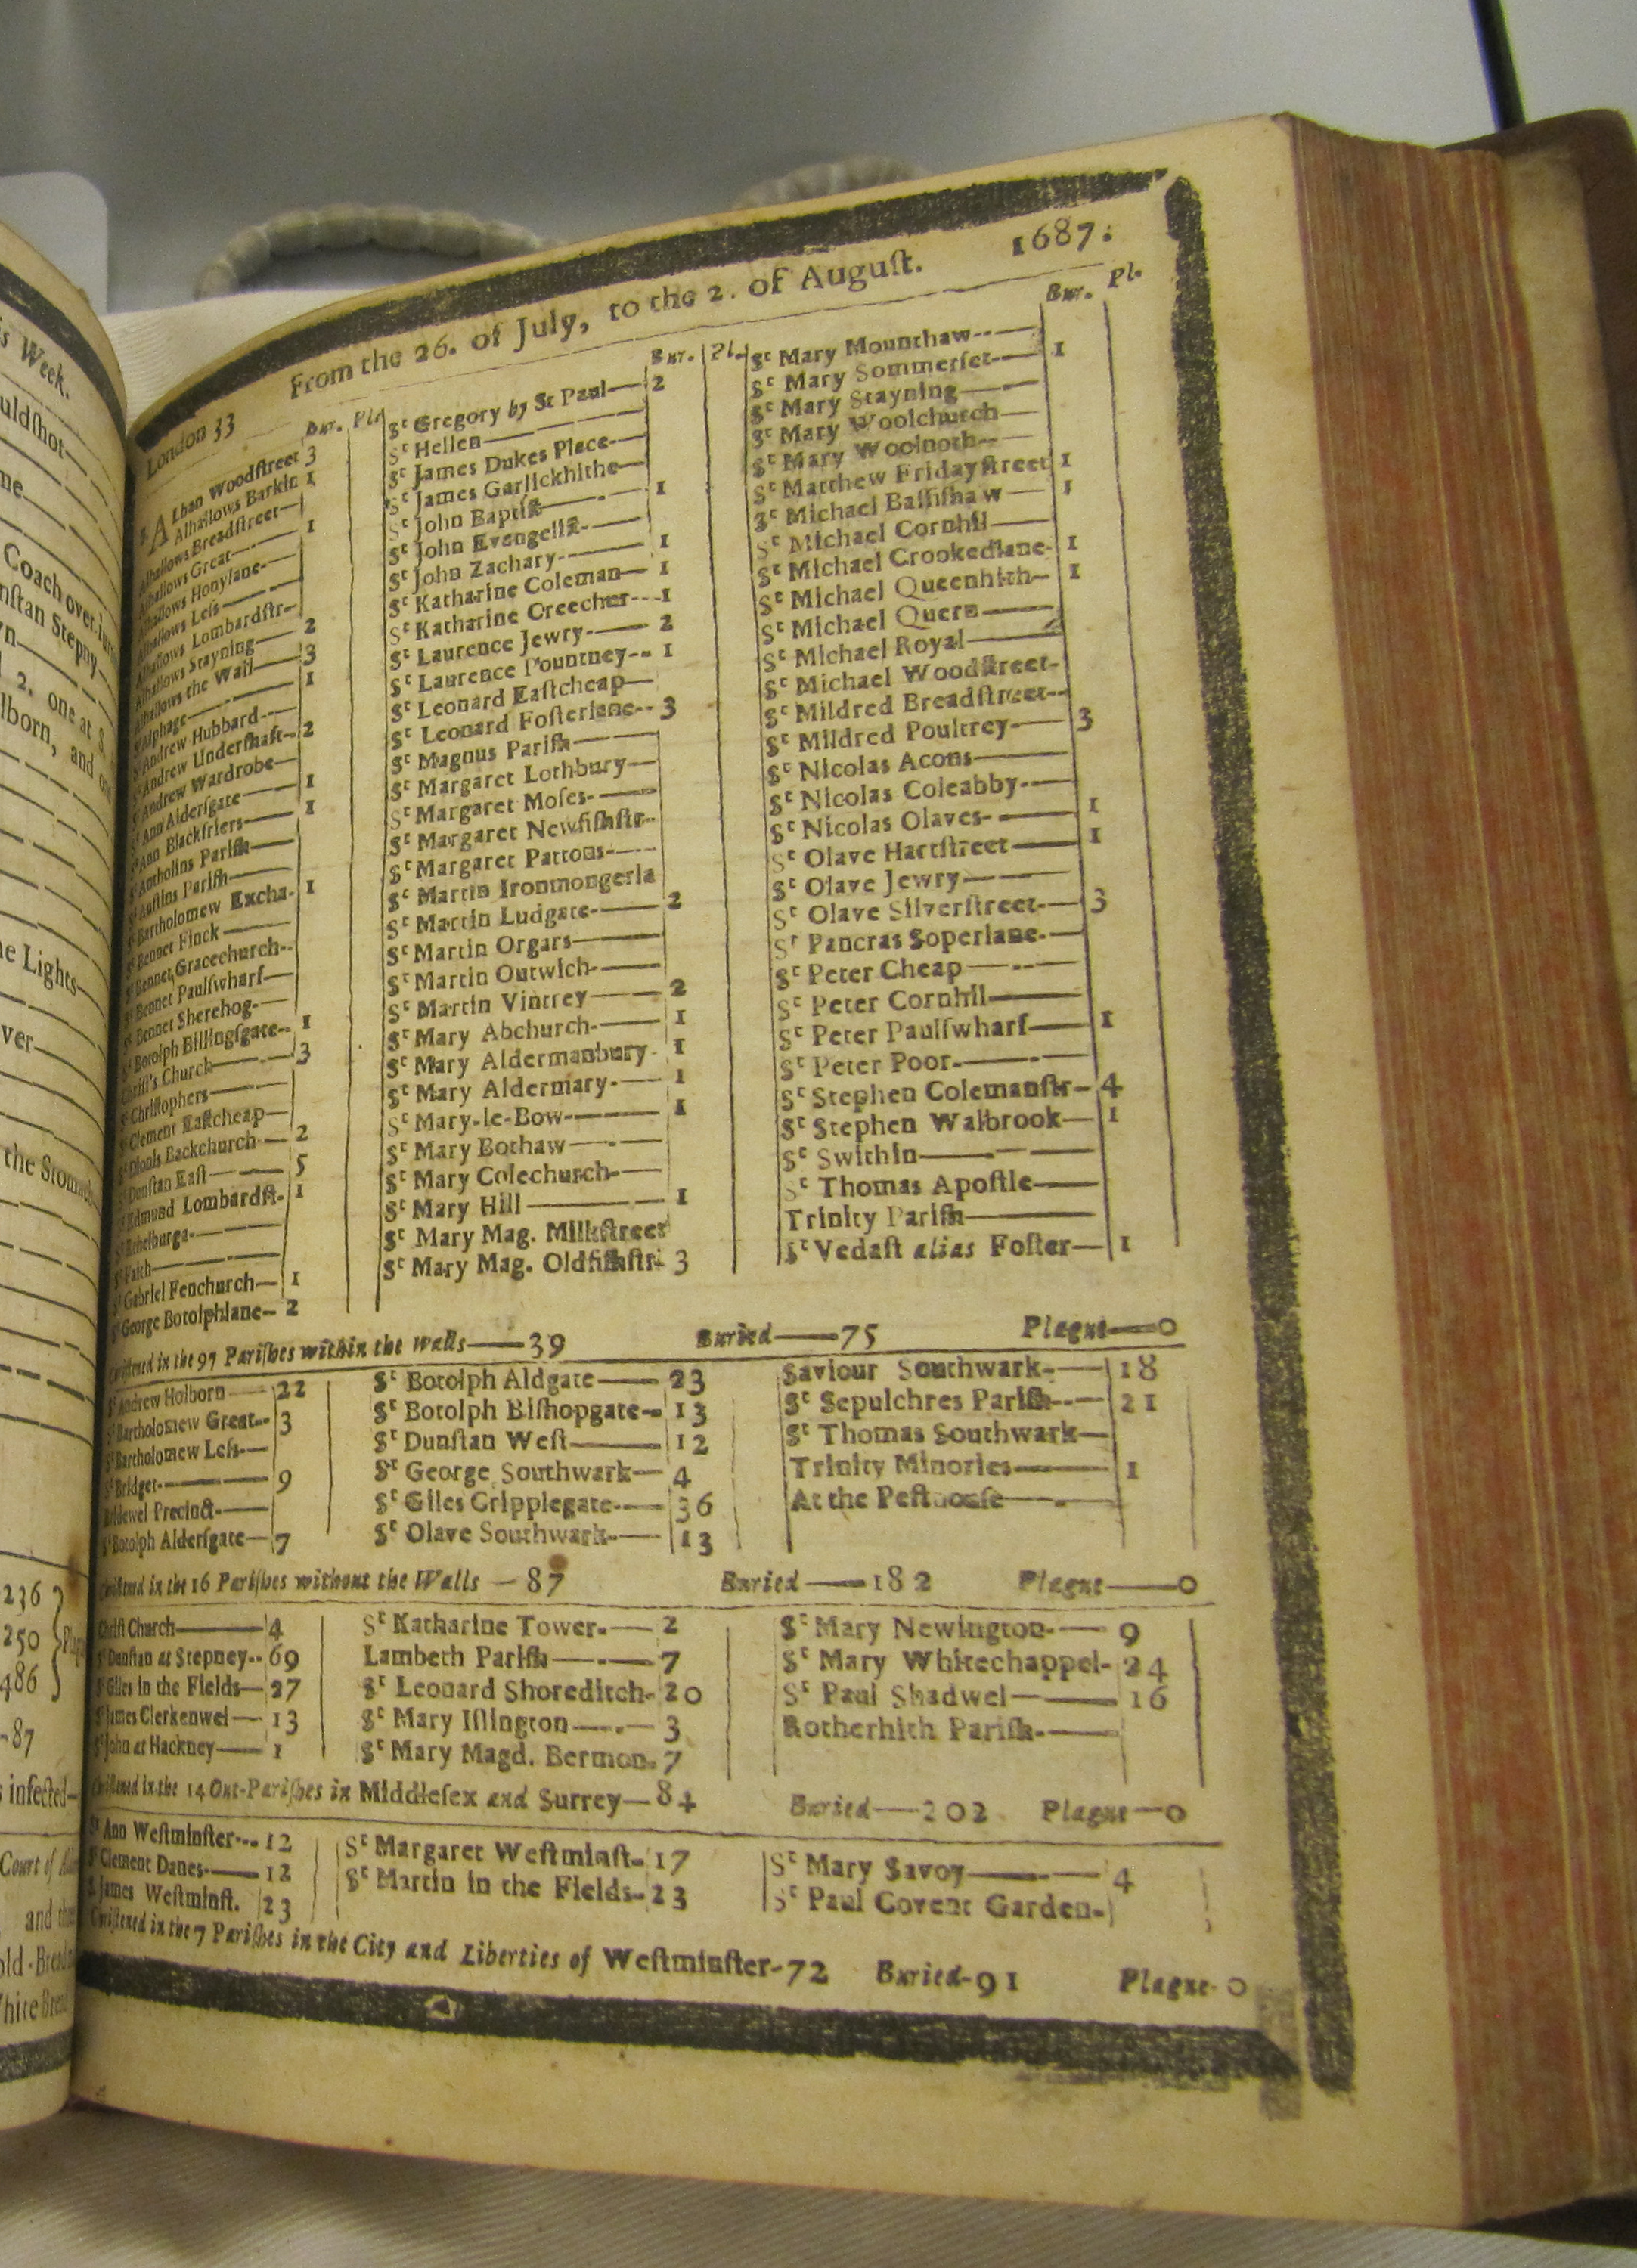 is Week.
uldſhot
me
Coach over
nſtan Stepny
2. one at S.
lborn, and
he Lights
ver
the Stomach
236
250
486
-87
infected
Court of
and
White
London 33 From the 26. of July, to the 2. of August. 1687.
Bur. Pl.
Alban Woodſtreet 3
Alhallows Barkin 1
Alhallows Breadſtreet
Alhallows Great 1
Alhallows Honylane
Alhallows Leſs
Alhallows Lombardſtr
Alhallows Stayning 2
Alhallows the Wall 3
Alphage 1
St Andrew Hubbard
St Andrew Underſhaft 2
St Andrew Wardrobe
St Ann Alderſgate 1
St Ann Blackfriers 1
St Antholins Pariſh
St Auſtins Pariſh
St Bartholomew Excha. 1
St Bennet Finck
St Bennet Gracechurch
St Bennet Paulſwharf
St Bennet Sherehog
St Botolph Billingſgate 1
Chriſt's Church 3
St Chriſtophers
St Clement Eaſtcheap
St Dionis Backchurch 2
St Dunſtan Eaſt 5
St Edmund Lombardſt. 1
St Ethelburga
St Faith
St Gabriel Fenchurch 1
St George Botolphlane 2
Bur. Pl.
St Gregory by St Paul 2
St Hellen
St James Dukes Place
St James Garlickhithe
St John Baptiſt 1
St John Evengeliſt
St John Zachary 1
St Katharine Coleman 1
St Katharine Creecher 1
St Laurence Jewry 2
St Laurence Pountney 1
St Leonard Eaſtcheap
St Leonard Foſterlane 3
St Magnus Pariſh
St Margaret Lothbury
St Margaret Moſes
St Margaret Newfiſhſtr
St Margaret Pattons
St Martin Ironmongerla
St Martin Ludgate 2
St Martin Orgars
St Martin Outwich
St Martin Vintrey 2
St Mary Abchurch 1
St Mary Aldermanbury 1
St Mary Aldermary 1
St Mary-le-Bow 1
St Mary Bothaw
St Mary Colechurch
St Mary Hill 1
St Mary Mag. Milkſtreet
St Mary Mag. Oldfiſhſtr 3
Bur. Pl.
St Mary Mounthaw
St Mary Sommerſet 1
St Mary Stayning
St Mary Woolchurch
St Mary Woolnoth
St Matthew Fridayſtreet 1
St Michael Baſſiſhaw 1
St Michael Cornhil
St Michael Crookedlane 1
St Michael Queenhith 1
St Michael Quern
St Michael Royal
St Michael Woodſtreet
St Mildred Breadſtreet
St Mildred Poultrey 3
St Nicolas Acons
St Nicolas Coleabby
St Nicolas Olaves 1
St Olave Hartſtreet 1
St Olave Jewry
St Olave Silverſtreet 3
St Pancras Soperlane
St Peter Cheap
St Peter Cornhil
St Peter Paulſwharf 1
St Peter Poor
St Stephen Colemanſtr 4
St Stephen Walbrook 1
St Swithin
St Thomas Apoſtle
Trinity Pariſh
St Vedaſt alias Foſter 1
Chriſtned in the 97 Pariſhes within the Walls—39 Buried—75 Plague—0
St Andrew Holborn 22
St Bartholomew Great 3
St Bartholomew Leſs
St Bridget 9
Bridewel Precinct
St Botolph Alderſgate 7
St Botolph Aldgate 23
St Botolph Biſhopgate 13
St Dunſtan Weſt 12
St George Southwark 4
St Giles Cripplegate 36
St Olave Southwark 13
Saviour Southwark 18
St Sepulchres Pariſh 21
St Thomas Southwark
Trinity Minories 1
At the Peſthouſe
Chriſtned in the 16 Pariſhes without the Walls—87 Buried—182 Plague—0
Chriſt Church 4
St Dunſtan at Stepney 69
St Giles in the Fields 27
St James Clerkenwel 13
St John at Hackney 1
St Katharine Tower 2
Lambeth Pariſh 7
St Leonard Shoreditch 20
St Mary Iſlington 3
St Mary Magd. Bermon. 7
St Mary Newington 9
St Mary Whitechappel 24
St Paul Shadwel 16
Rotherhith Pariſh
Chriſtned in the 14 Out-Pariſhes in Middleſex and Surrey—84 Buried—202 Plague—0
St Ann Weſtminſter 12
St Clement Danes 12
St James Weſtminſt. 23
St Margaret Weſtminſt 17
St Martin in the Fields 23
St Mary Savoy 4
St Paul Covent Garden
Chriſtened in the 7 Pariſhes in the City and Liberties of Weſtminſter-72 Buried-91 Plague-0